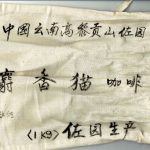 中国云南高黎贡山佐园
麝香猫咖啡
<1K9>佐园生产